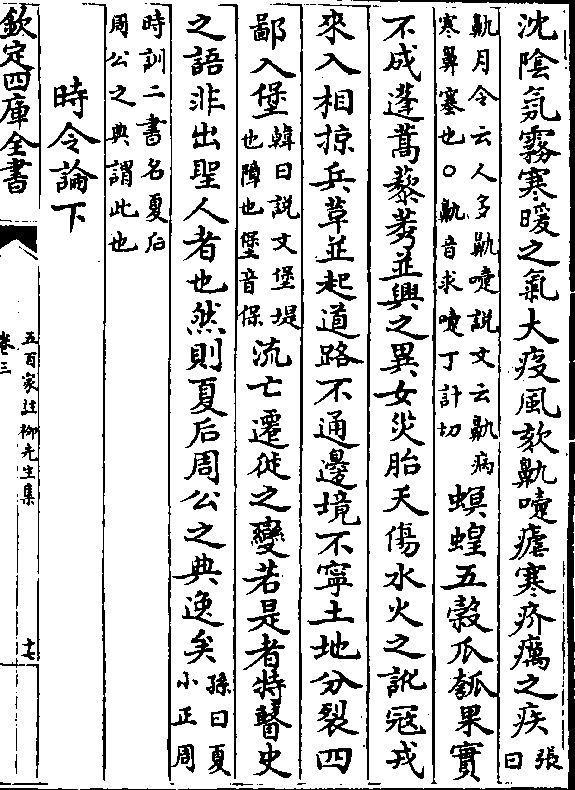 沈陰氛霧寒暖之氣大疫風欬鼽嚏瘧寒疥癘之疾張曰
鼽月令云人多鼽嚏說文云鼽病寒鼻塞也○鼽音求嚏丁計切螟蝗五穀瓜瓠果實
不成蓬蒿藜莠並興之異女災胎夭傷水火之訛寇戎
來入相掠兵革並起道路不通邊境不寧土地分裂四
鄙入堡韓曰說文堡堤也障也堡音保流亡遷徙之變若是者特瞽史
之語非出聖人者也然則夏后周公之典逸矣孫曰夏小正周
時訓二書名夏后周公之典謂此也
時令論下
欽定四庫全書
五百家註柳先生集
卷三
十七